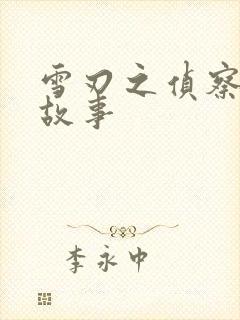 雪刃之侦察
故事
李永中